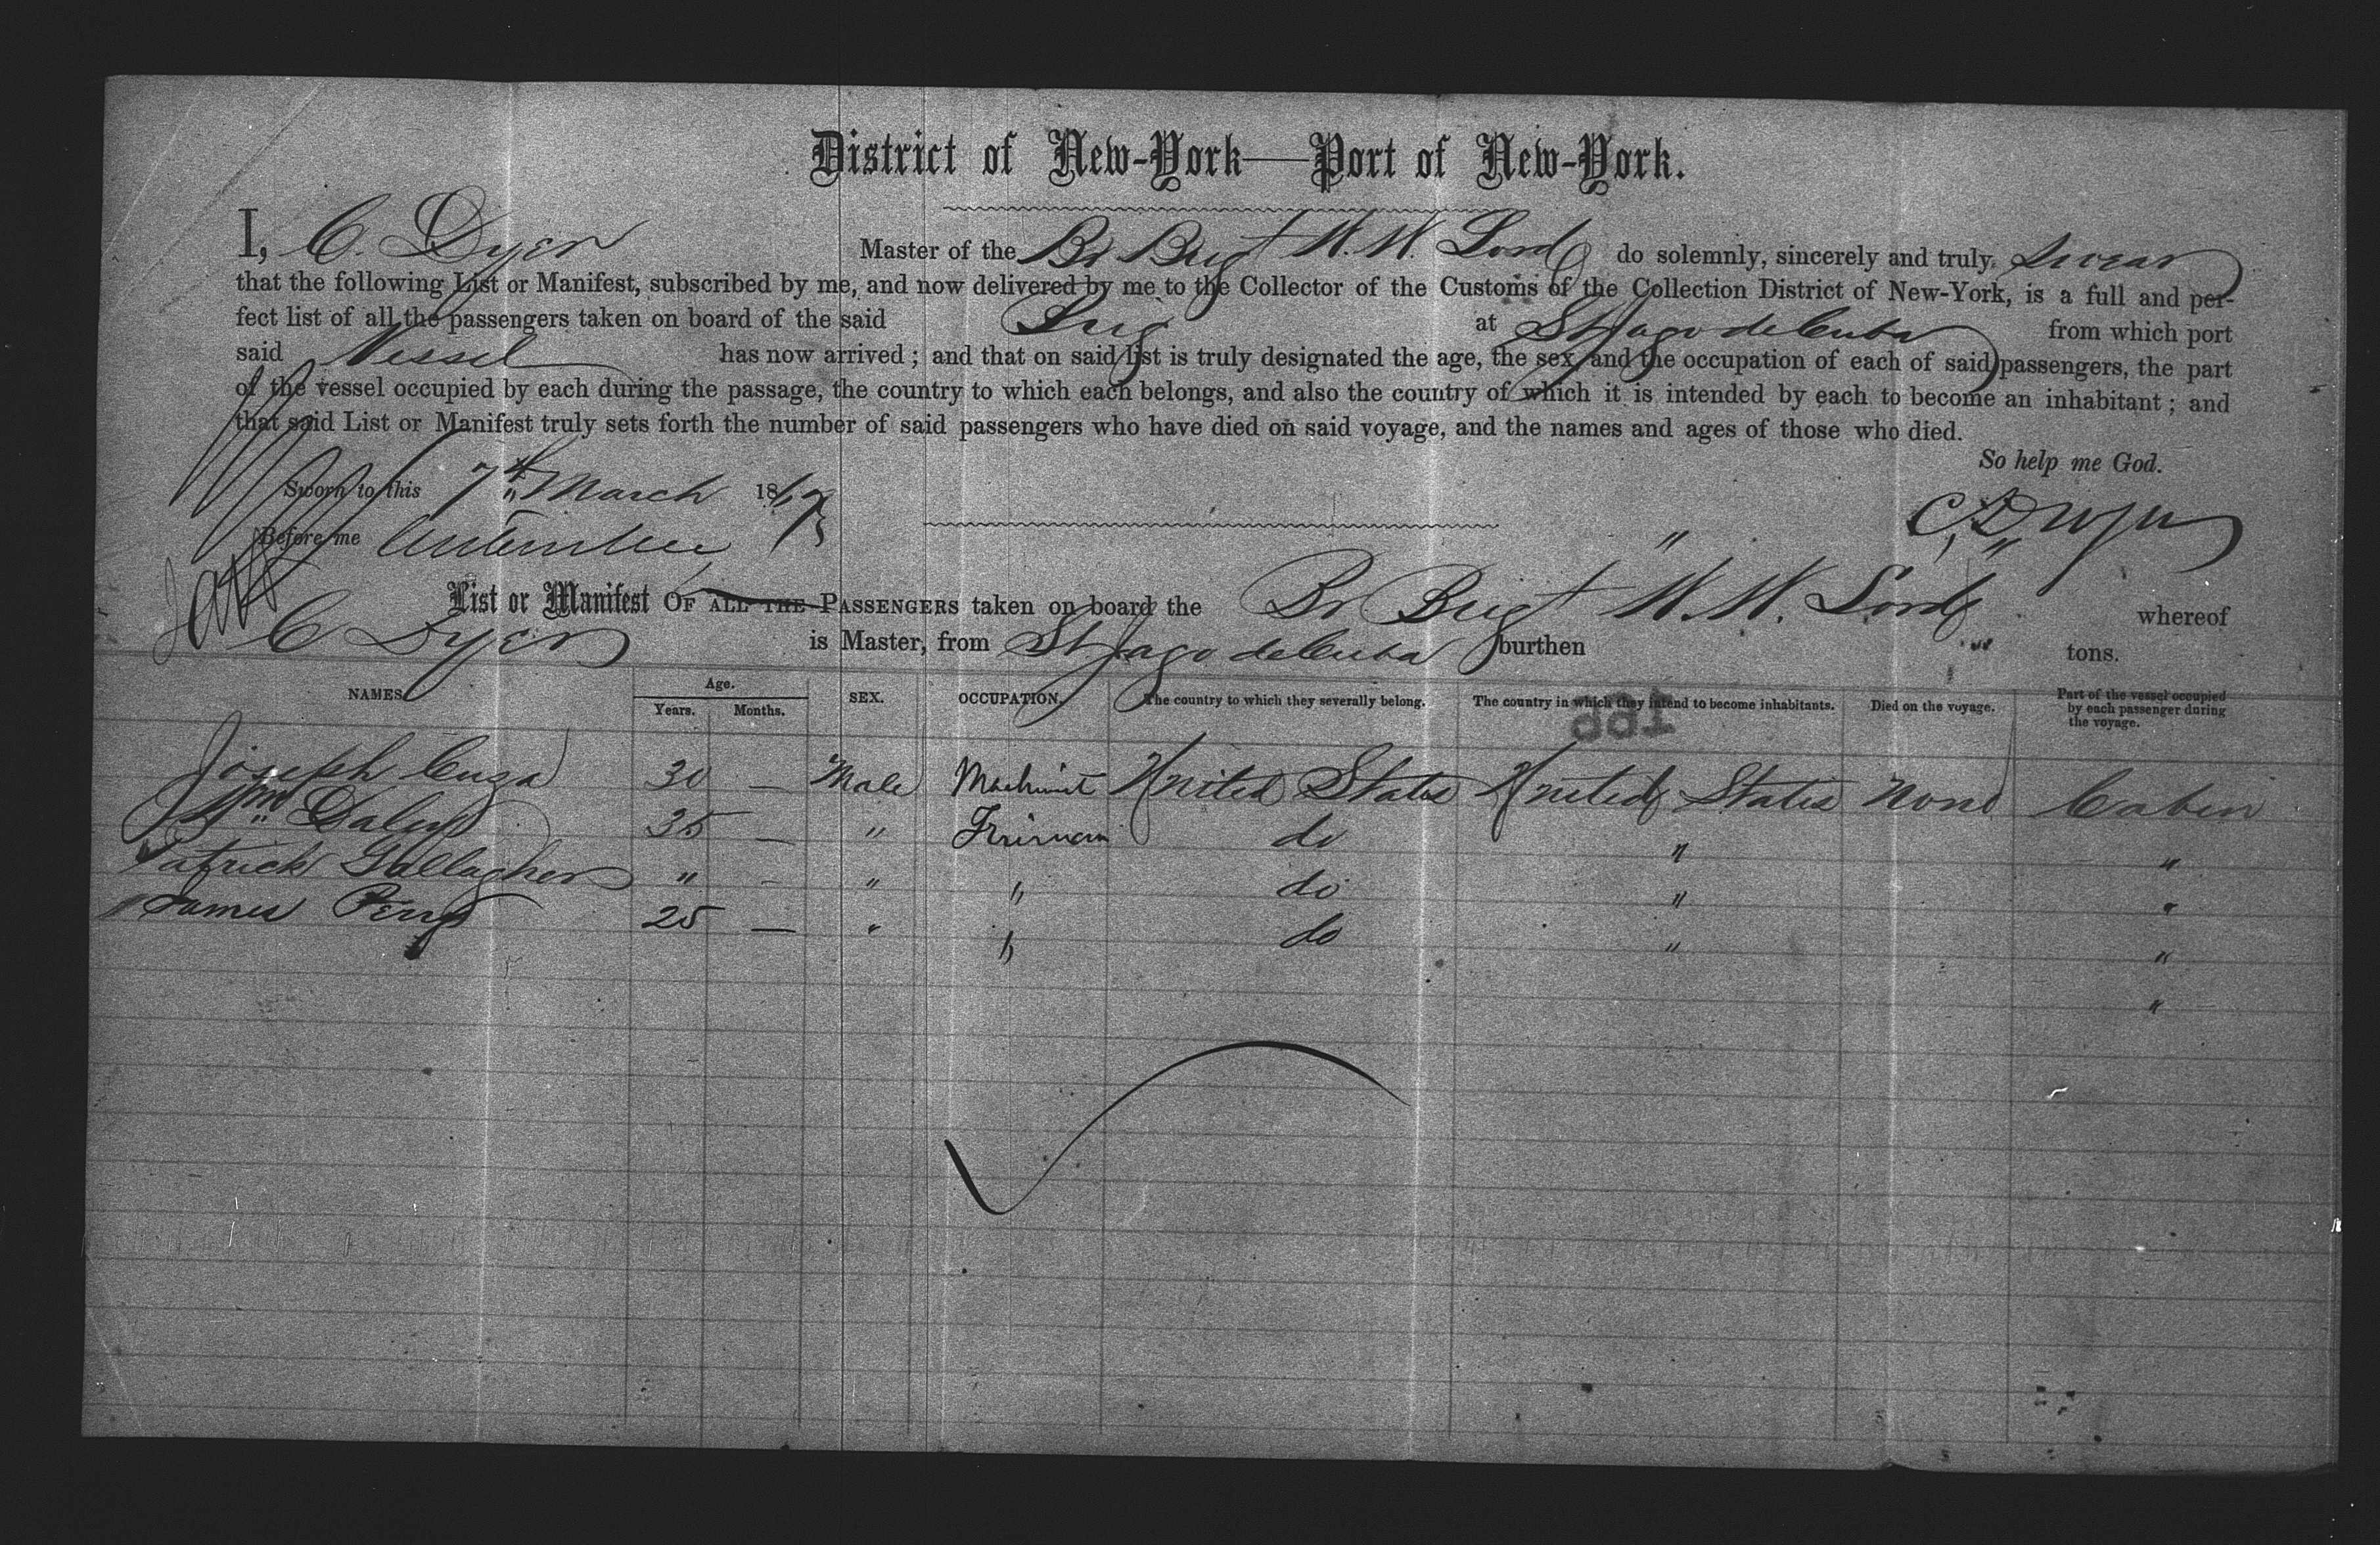 District of New-York—Port of New-York.
I, C. Dyer Master of the Br Brigt W. W. Lord do solemnly, sincerely and truly swear
that the following List or Manifest, subscribed by me, and now delivered by me to the Collector of the Customs of the Collection District of New-York, is a full and per-
fect list of all the passengers taken on board of the said Brig at St Jago de Cuba from which port
said Vessel has now arrived ; and that on said list is truly designated the age, the sex, and the occupation of each of said passengers, the part
of the vessel occupied by each during the passage, the country to which each belongs, and also the country of which it is intended by each to become an inhabitant ; and
that said List or Manifest truly sets forth the number of said passengers who have died on said voyage, and the names and ages of those who died.
So help me God.
Sworn to this 7th March 1867
C. Dyer
Before me
List or Manifest OF ALL THE PASSENGERS taken on board the Br Brigt W. W. Lord whereof
C Dyer is Master, from St Jago de Cuba burthen " tons.
NAMES. Age. Years. Months. SEX. OCCUPATION. The country to which they severally belong. The country in which they intend to become inhabitants. Died on the voyage. Part of the vessel occupied by each passenger during the voyage.
Joseph 30 — Male Machinist United States United States None Cabin
Wm Daley 35 — " Fireman do " "
Patrick Gallagher " - " " do " "
James Perry 25 — " " do " "
"